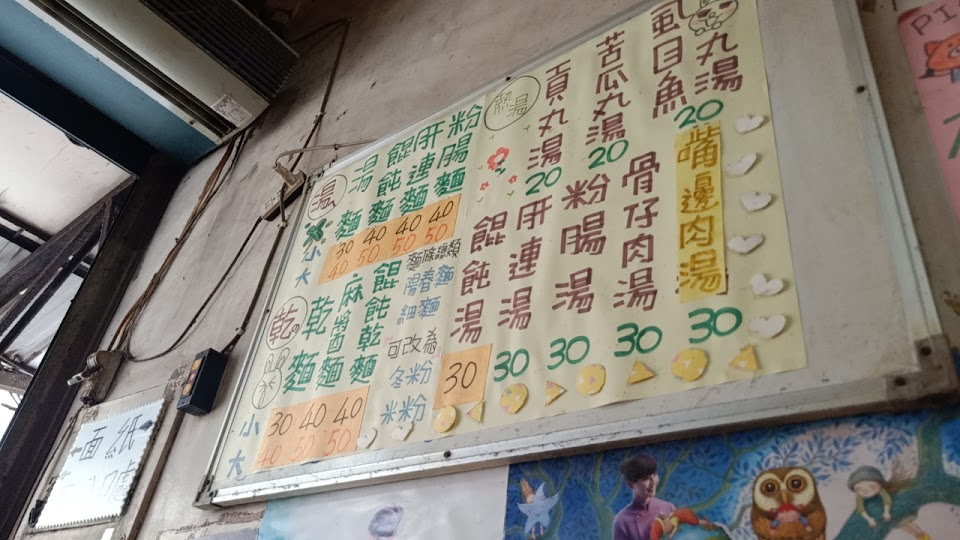 湯
湯麵
餛飩麵
肝連麵
粉腸麵
小 30 40 40 40
大 40 50 50 50
乾の
乾麵
麻醬麵
餛飩乾麵
小 30 40 40
大 40 50 50
麵條種類
陽春麵
細麵
可改為
冬粉
米粉
熱湯
貢丸湯 20
苦瓜丸湯 20
虱目魚丸湯 20
餛飩湯 30
肝連湯 30
粉腸湯 30
骨仔肉湯 30
嘴邊肉湯 30
面紙
PI